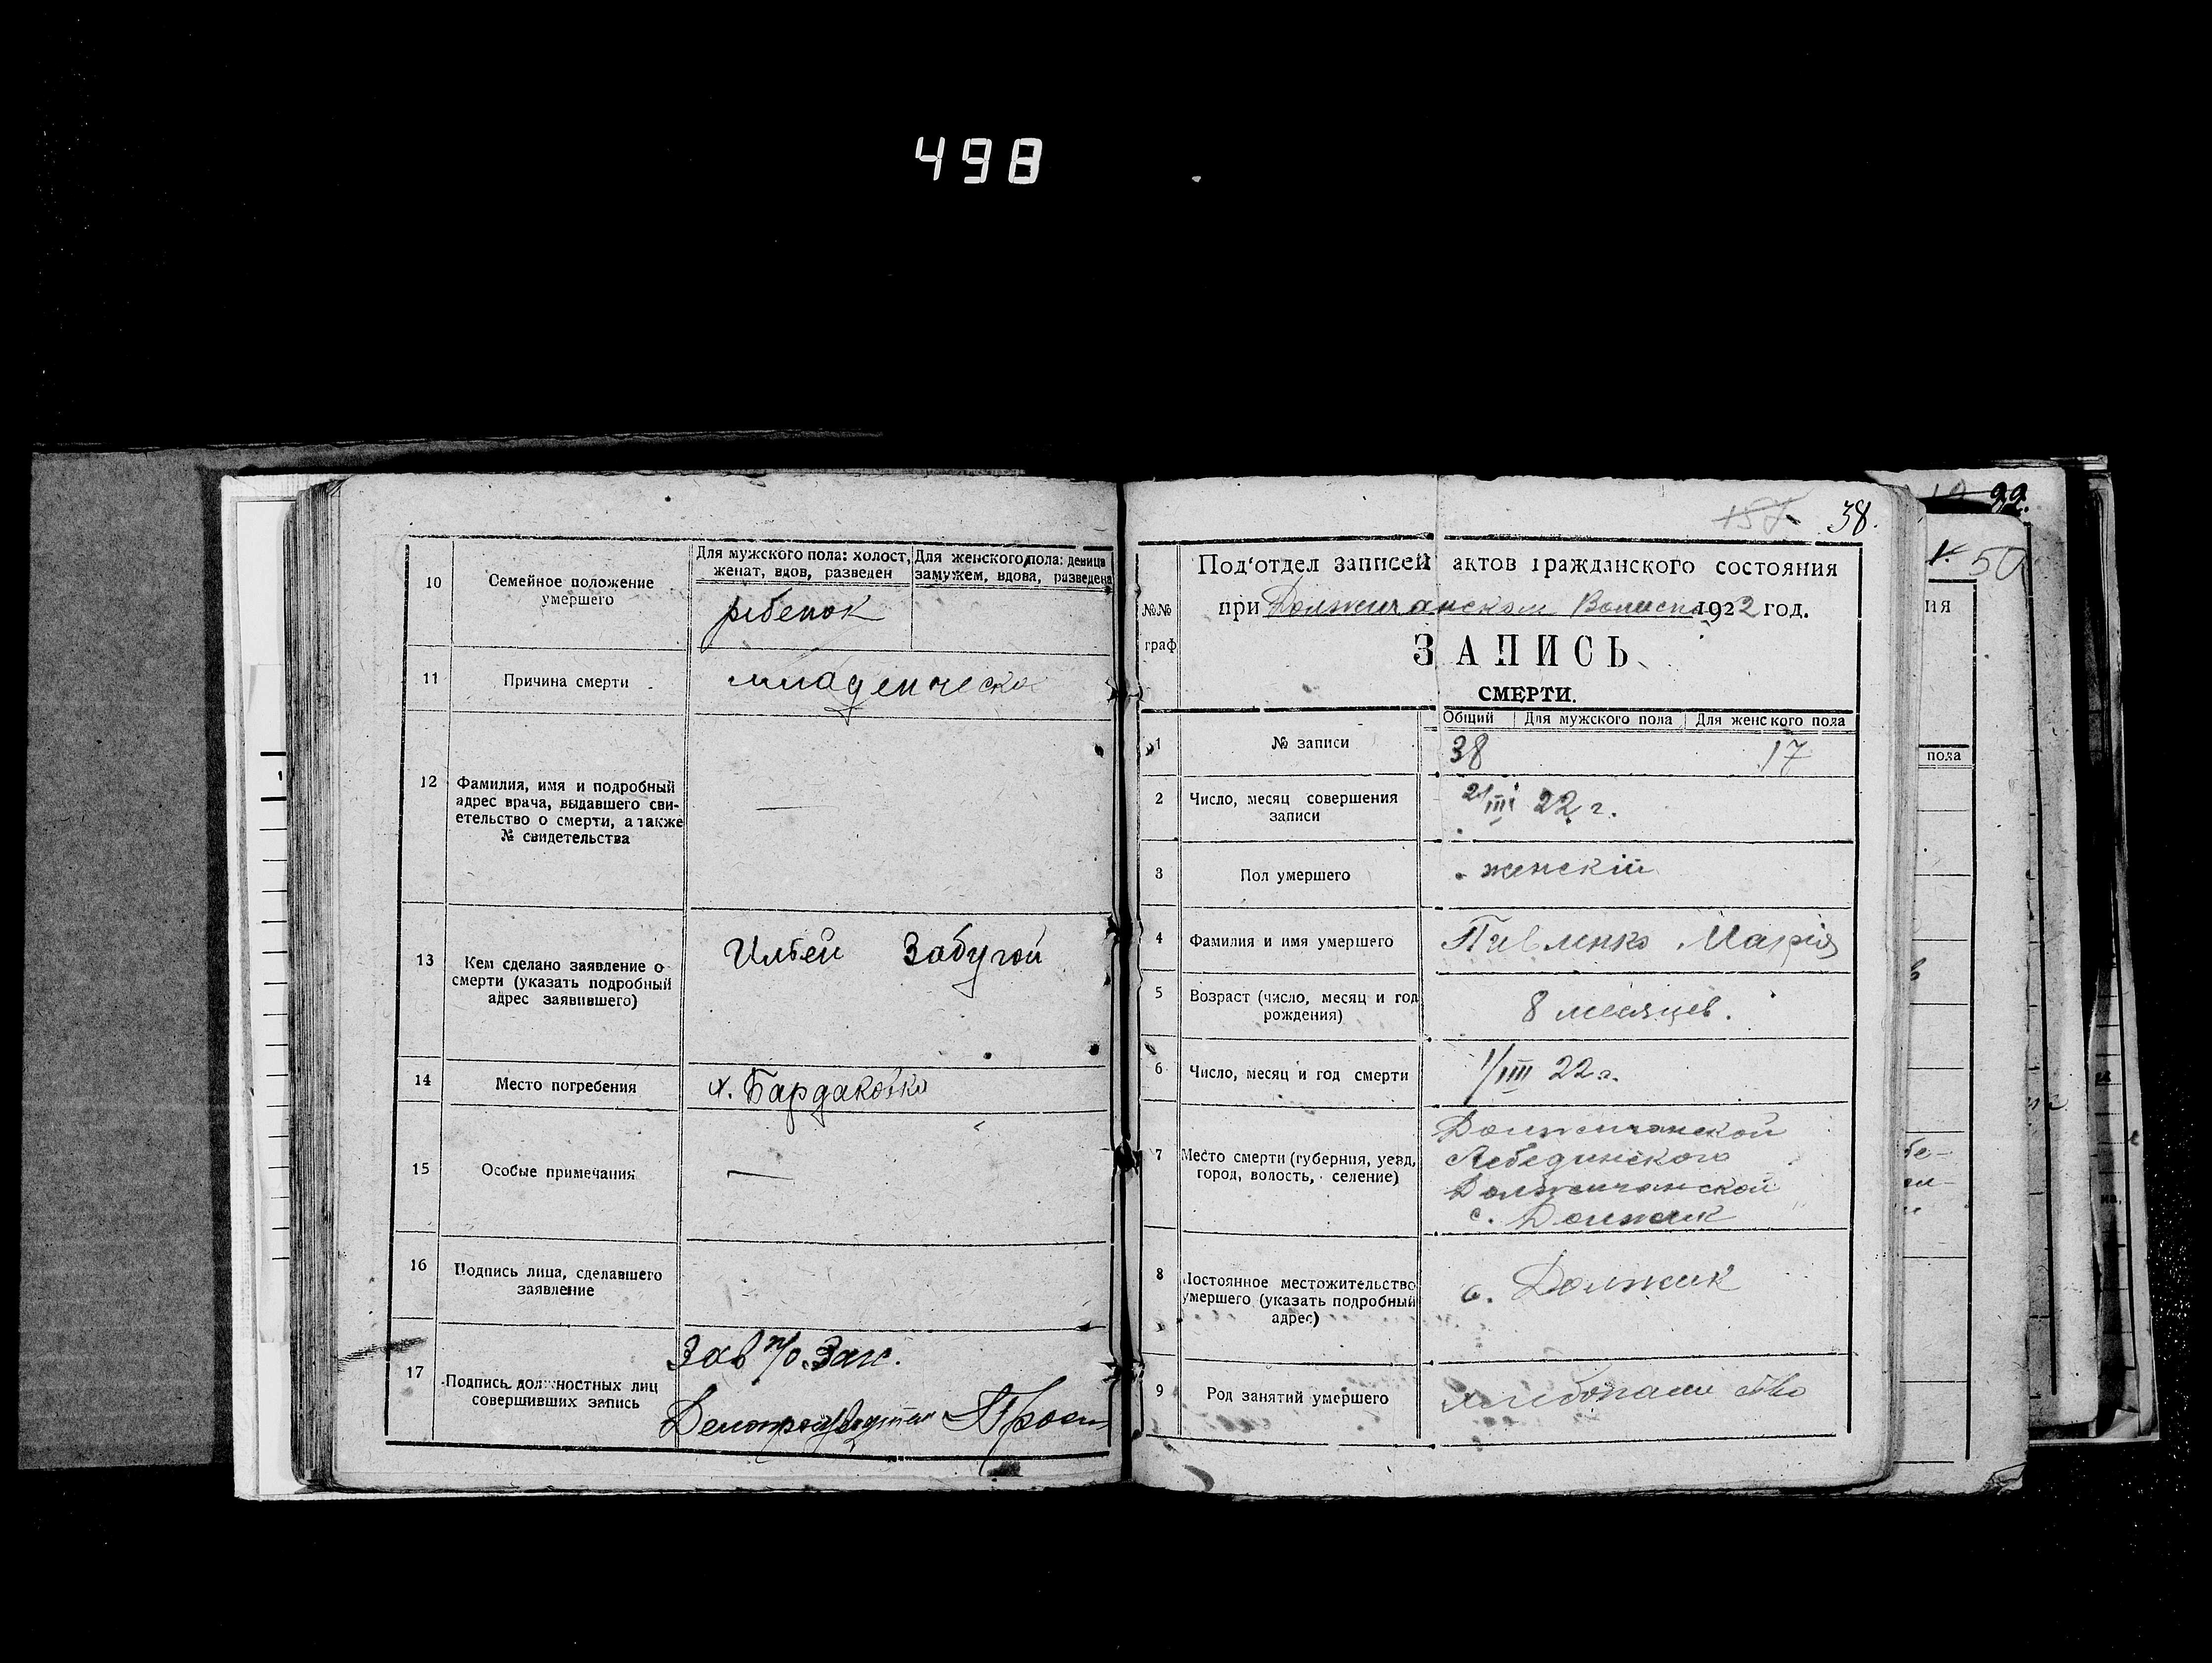 498
10
Семейное положение
умершего
Для мужского пола: холост,
женат, вдов, разведен
Для женского пола: девица
замужем, вдова, разведена
рѣбенок
11
Причина смерти
младенческа
12
Фамилия, имя и подробный
адрес врача, выдавшего сви-
етельство о смерти, а также
№ свидетельства
—
13
Кем сделано заявление о
смерти (указать подробный
адрес заявившего)
Забугой
14
Место погребения
х. Бардаковка
15
Особые примечания
—
16
Подпись лица, сделавшего
заявление
17
Подпись должностных лиц
совершивших запись
Зав п/о. Заг.
38.
№№
граф
Под'отдел записей актов гражданского состояния
при Должичанском Волиспо 1922 год.
ЗАПИСЬ
СМЕРТИ.
Общий
Для мужского пола
Для женского пола
1
№ записи
38
17
2
Число, месяц совершения
записи
21/III 22 г.
3
Пол умершего
женскій
4
Фамилия и имя умершего
Пивленко Марія
5
Возраст (число, месяц и год
рождения)
8 месяцев.
6
Число, месяц и год смерти
1/III 22 г.
7
Место смерти (губерния, уезд,
город, волость, селение)
Лебединского
Должичанской
с. Должик
8
Постоянное местожительство
умершего (указать подробный
адрес)
с. Должик
9
Род занятий умершего
50
ия
пола